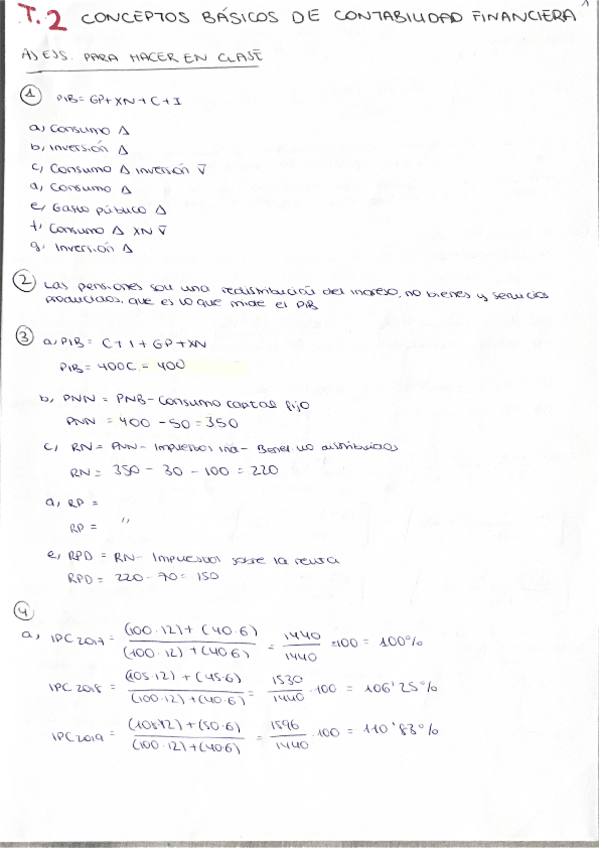 T.2 CONCEPTOS BÁSICOS DE CONTABILIDAD FINANCIERA
A) EJS. PARA HACER EN CLASE
1 PIB = GP + XN + C + I
a) Consumo Δ
b) Inversión Δ
c) Consumo Δ inversión ∇
d) Consumo Δ
e) Gasto público Δ
f) Consumo Δ XN ∇
g) Inversión Δ
2 Las pensiones son una redistribución del ingreso, no bienes y servicios
producidos, que es lo que mide el PIB
3 a) PIB = C + I + GP + XN
PIB = 400C = 400
b) PNN = PNB - Consumo capital fijo
PNN = 400 - 50 = 350
c) RN = PNN - Impuestos ind - Benef no distribuidos
RN = 350 - 30 - 100 = 220
d) RP =
RP = "
e) RPD = RN - Impuestos sobre la renta
RPD = 220 - 70 = 150
4
a) IPC 2017 = (100·12) + (40·6) / (100·12) + (40·6) = 1440 / 1440 · 100 = 100%
IPC 2018 = (105·12) + (45·6) / (100·12) + (40·6) = 1530 / 1440 · 100 = 106'25%
IPC 2019 = (108·12) + (50·6) / (100·12) + (40·6) = 1596 / 1440 · 100 = 110'83%